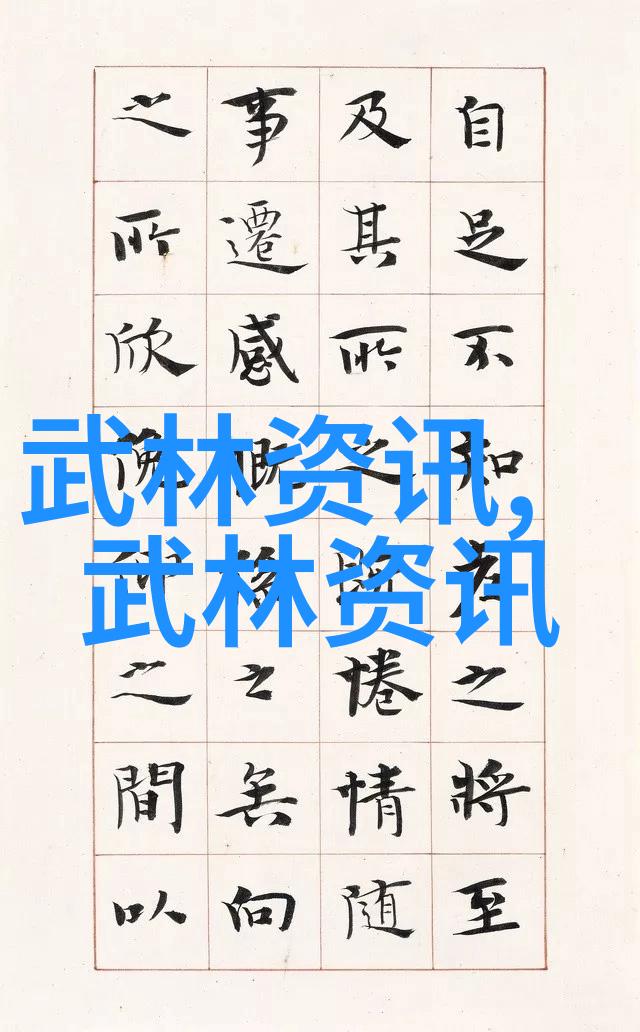 自足不知老之將至
及其所之既惓情隨
事遷感慨係之矣向
之所欣俛仰之間以
武林资讯,
武林资讯